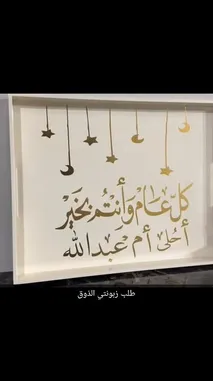 كل عام وأنتم بخير
أحلى أم عبدالله
طلب زبونتي الذوق